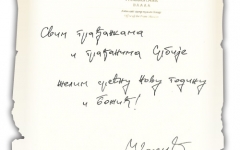 Свим грађанкама
и грађанима Србије
желим срећну Нову годину
и Божић!